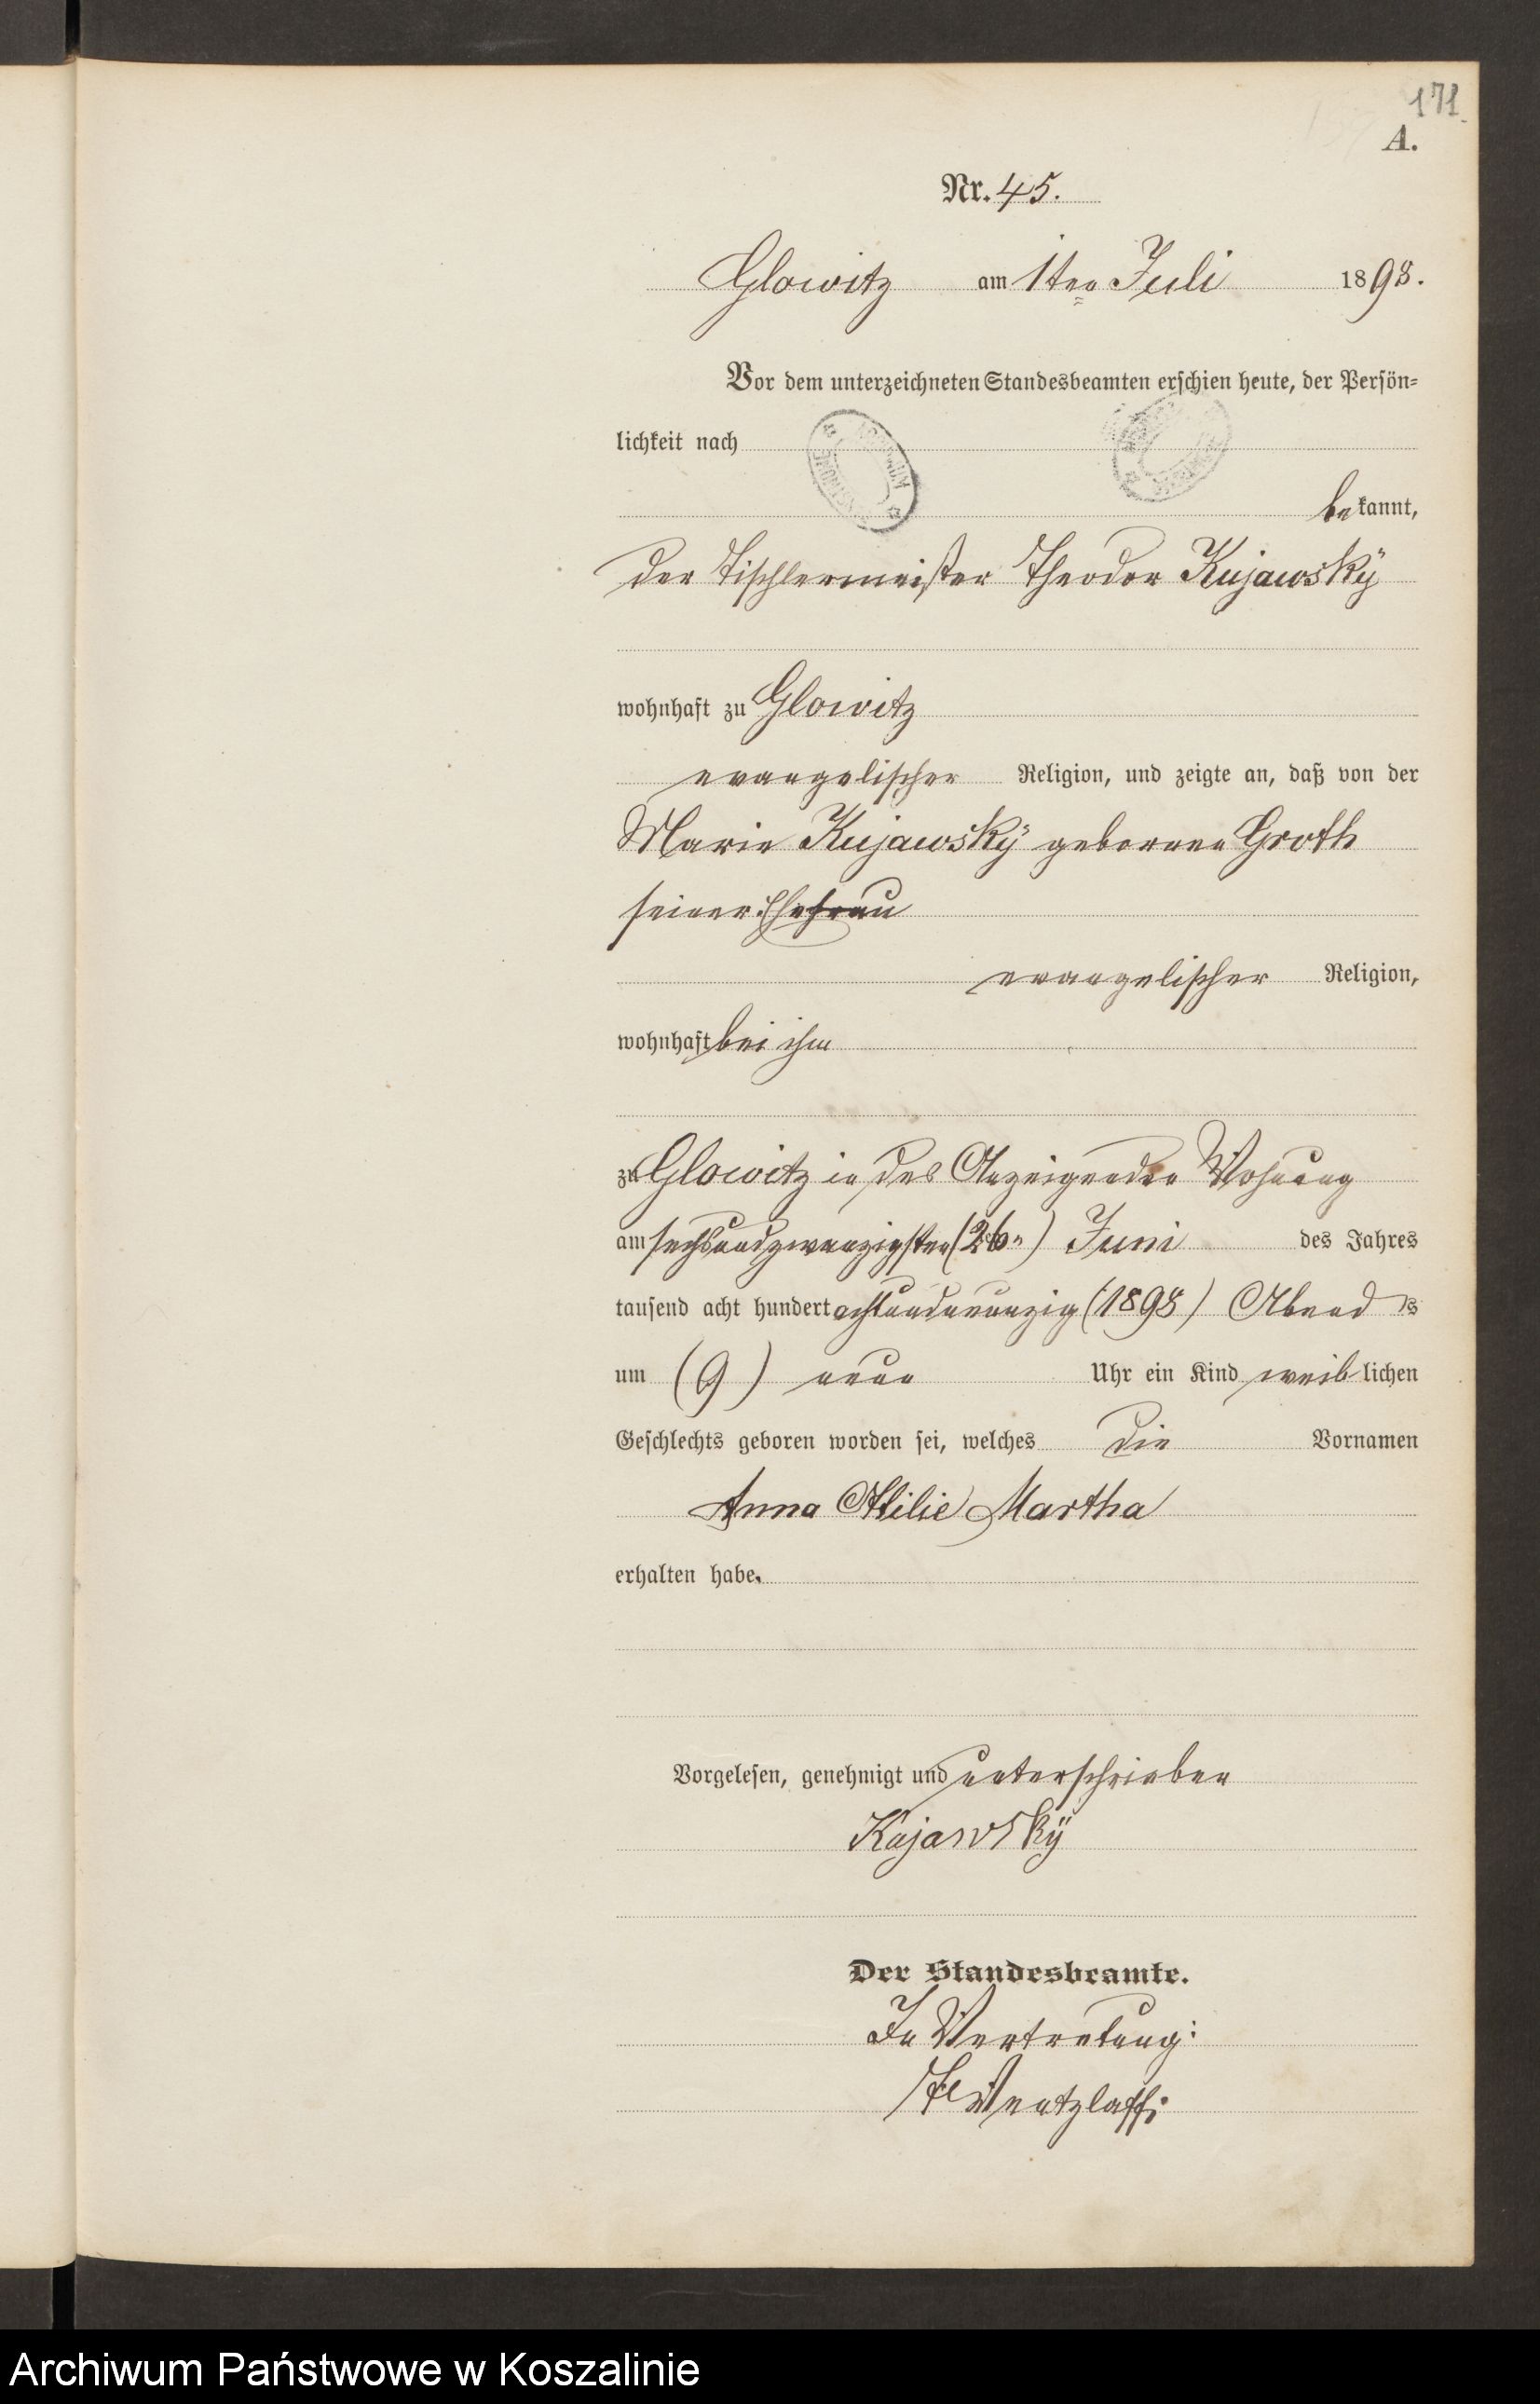 171
A.
Nr. 45.
Glowitz am 1ten Juli 1898.
Vor dem unterzeichneten Standesbeamten erschien heute, der Persön=
lichkeit nach
bekannt,
der Tischlermeister Theodor Kujawsky
wohnhaft zu Glowitz
evangelischer Religion, und zeigte an, daß von der
Marie Kujawsky geborenen Groth
seiner Ehefrau
evangelischer Religion,
wohnhaft bei ihm
zu Glowitz in des Anzeigenden Wohnung
am sechsundzwanzigsten (26ten) Juni des Jahres
tausend acht hundert achtundneunzig (1898) Abends
um (9) neun Uhr ein Kind weiblichen
Geschlechts geboren worden sei, welches die Vornamen
Anna Martha
erhalten habe.
Vorgelesen, genehmigt und unterschrieben
Kujawsky
Der Standesbeamte.
In Vertretung:
Wentzlaff
Archiwum Państwowe w Koszalinie